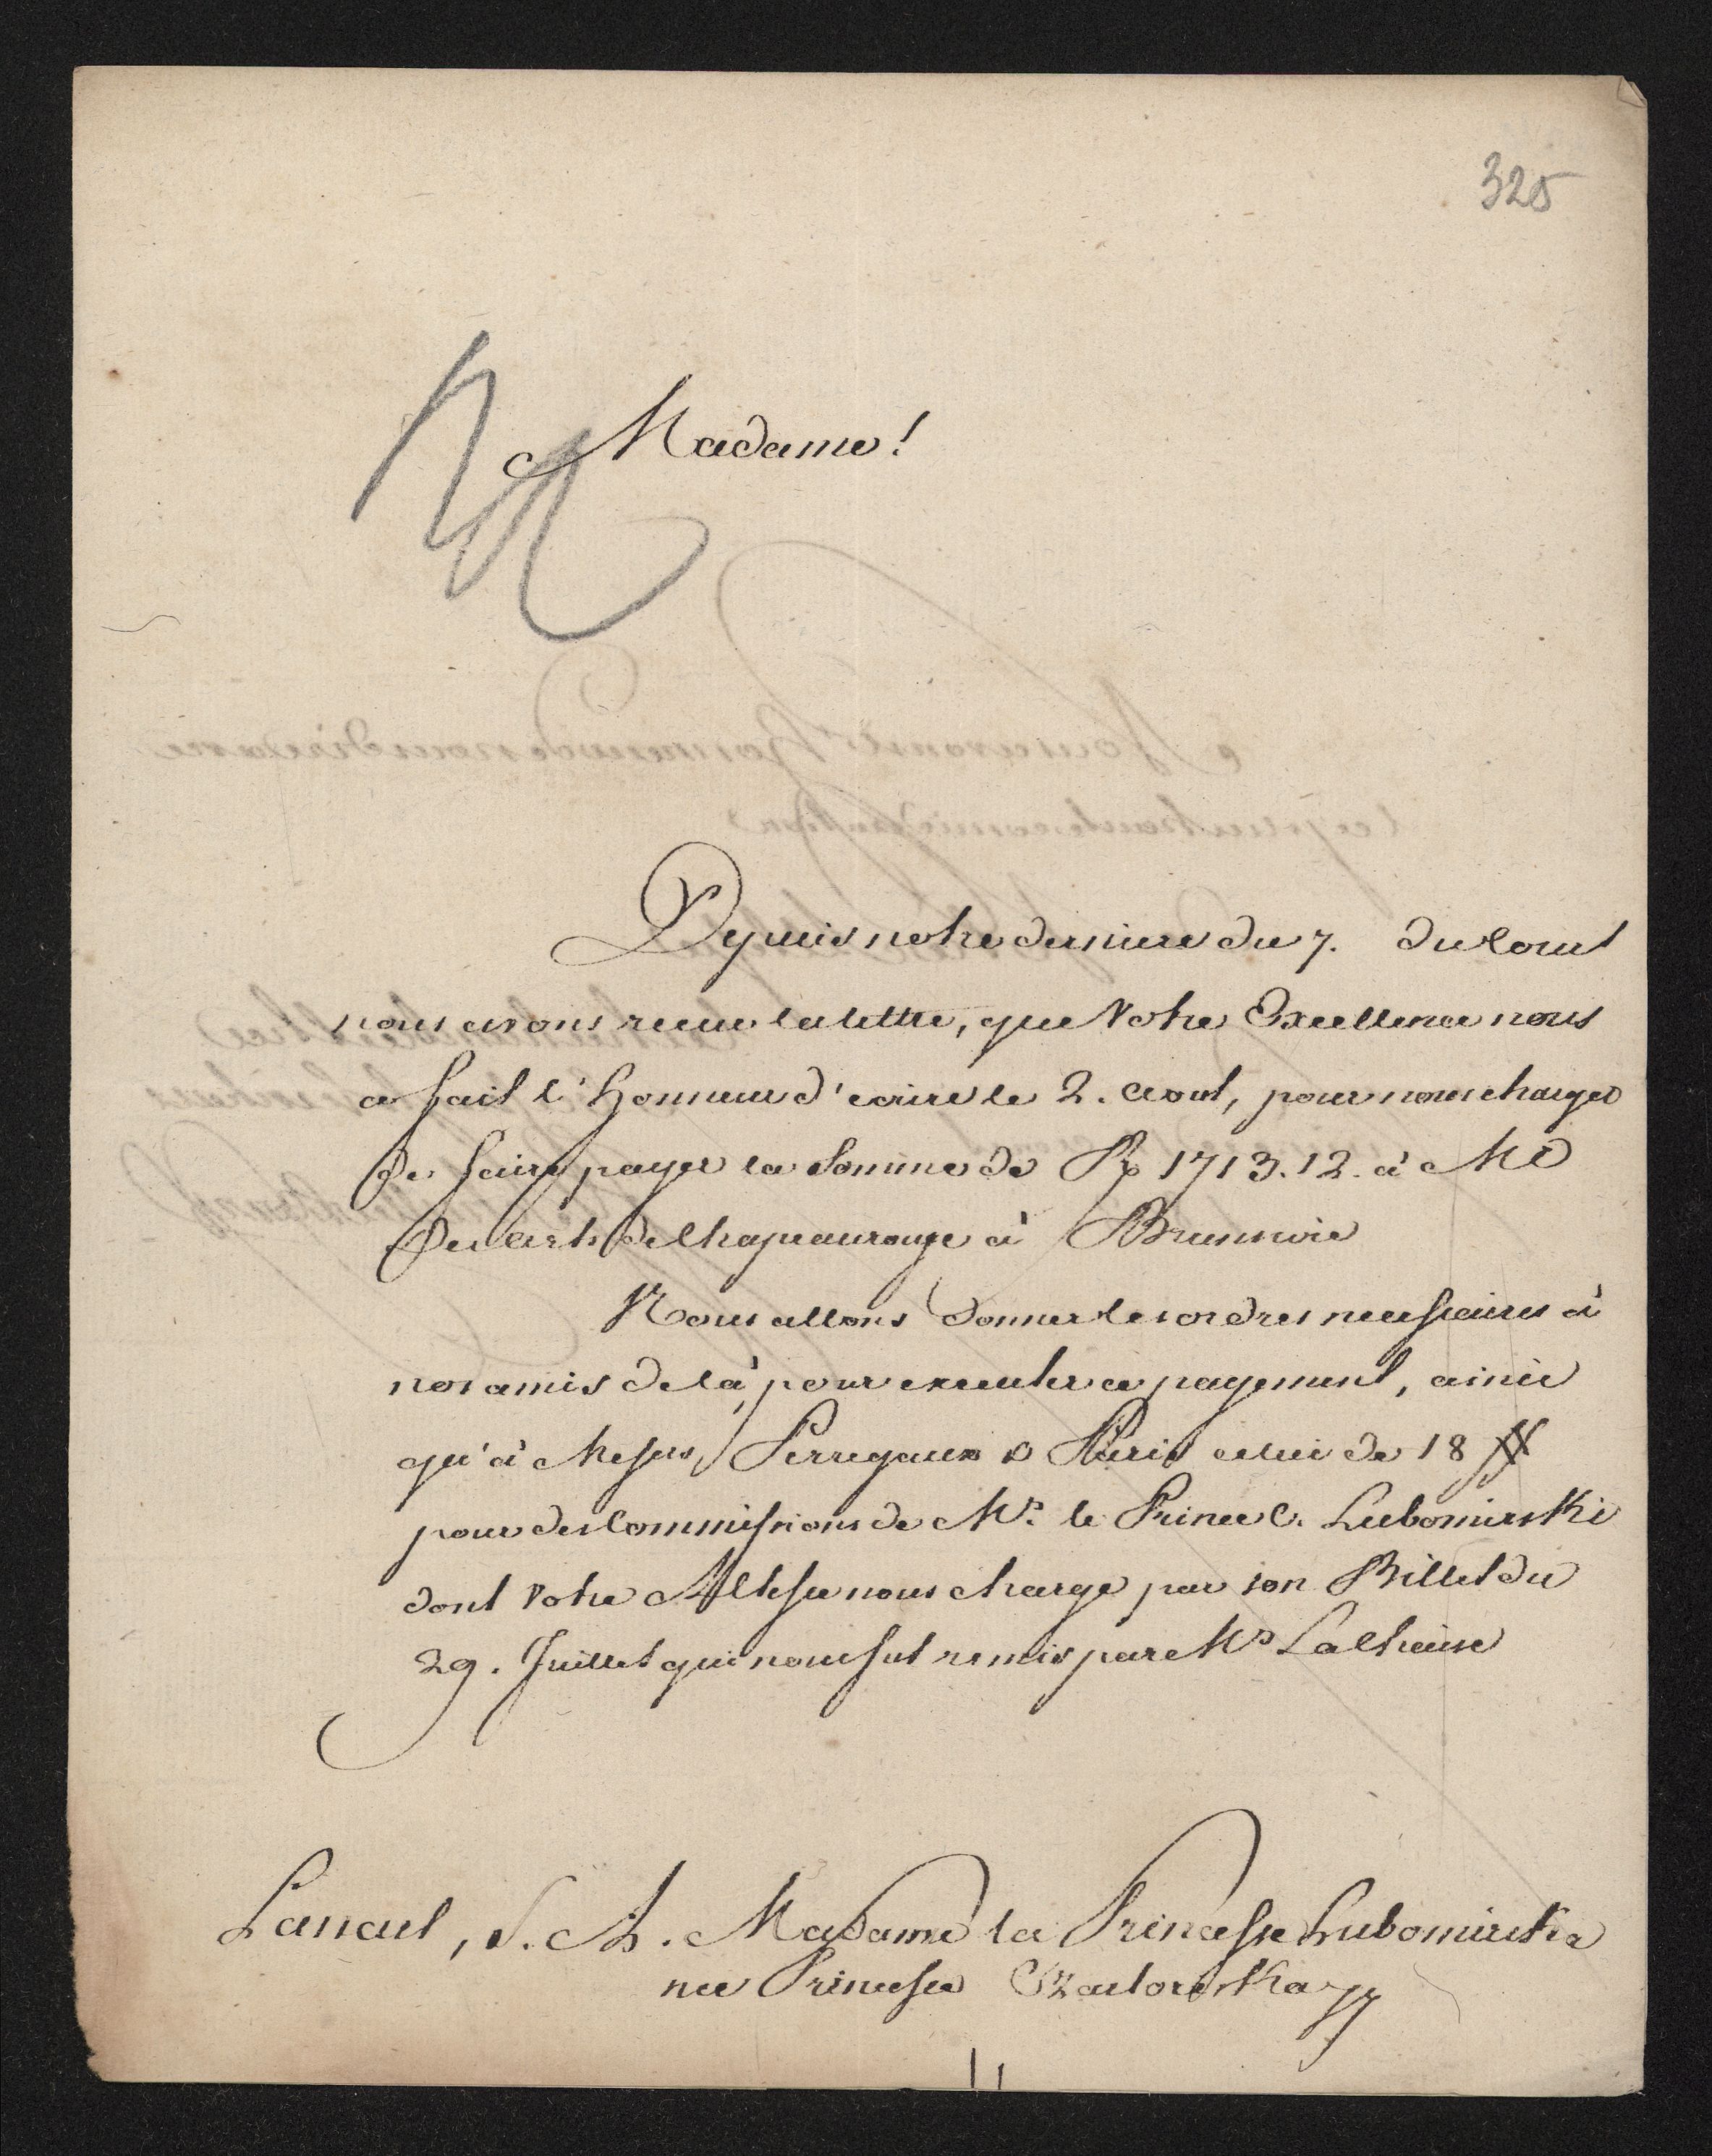 325
Madame!
Depuis notre derniere du 7. du Court
nous avons recue la lettre, que Votre Excellence nous
a fait l'Honneur d'ecrire le 2. aout, pour nous charger
de faire payer la Somme de Rp 1713.12. à Md
Des Arts de Chapeaurouge à Brunsvic
Nous allons donner les ordres necessaires à
nos amis de là, pour executer ce payement, ainsi
qu'à Messrs Perregaux à Paris celui de 18 #
pour des Commissions de Mr. le Prince C. Lubomirski
dont Votre Altesse nous charge par son Billet du
29. Juillet qui nous fut remis par Mr
Lancut, S. A. Madame la Princesse Lubomirska
nee Princesse Czartoriska